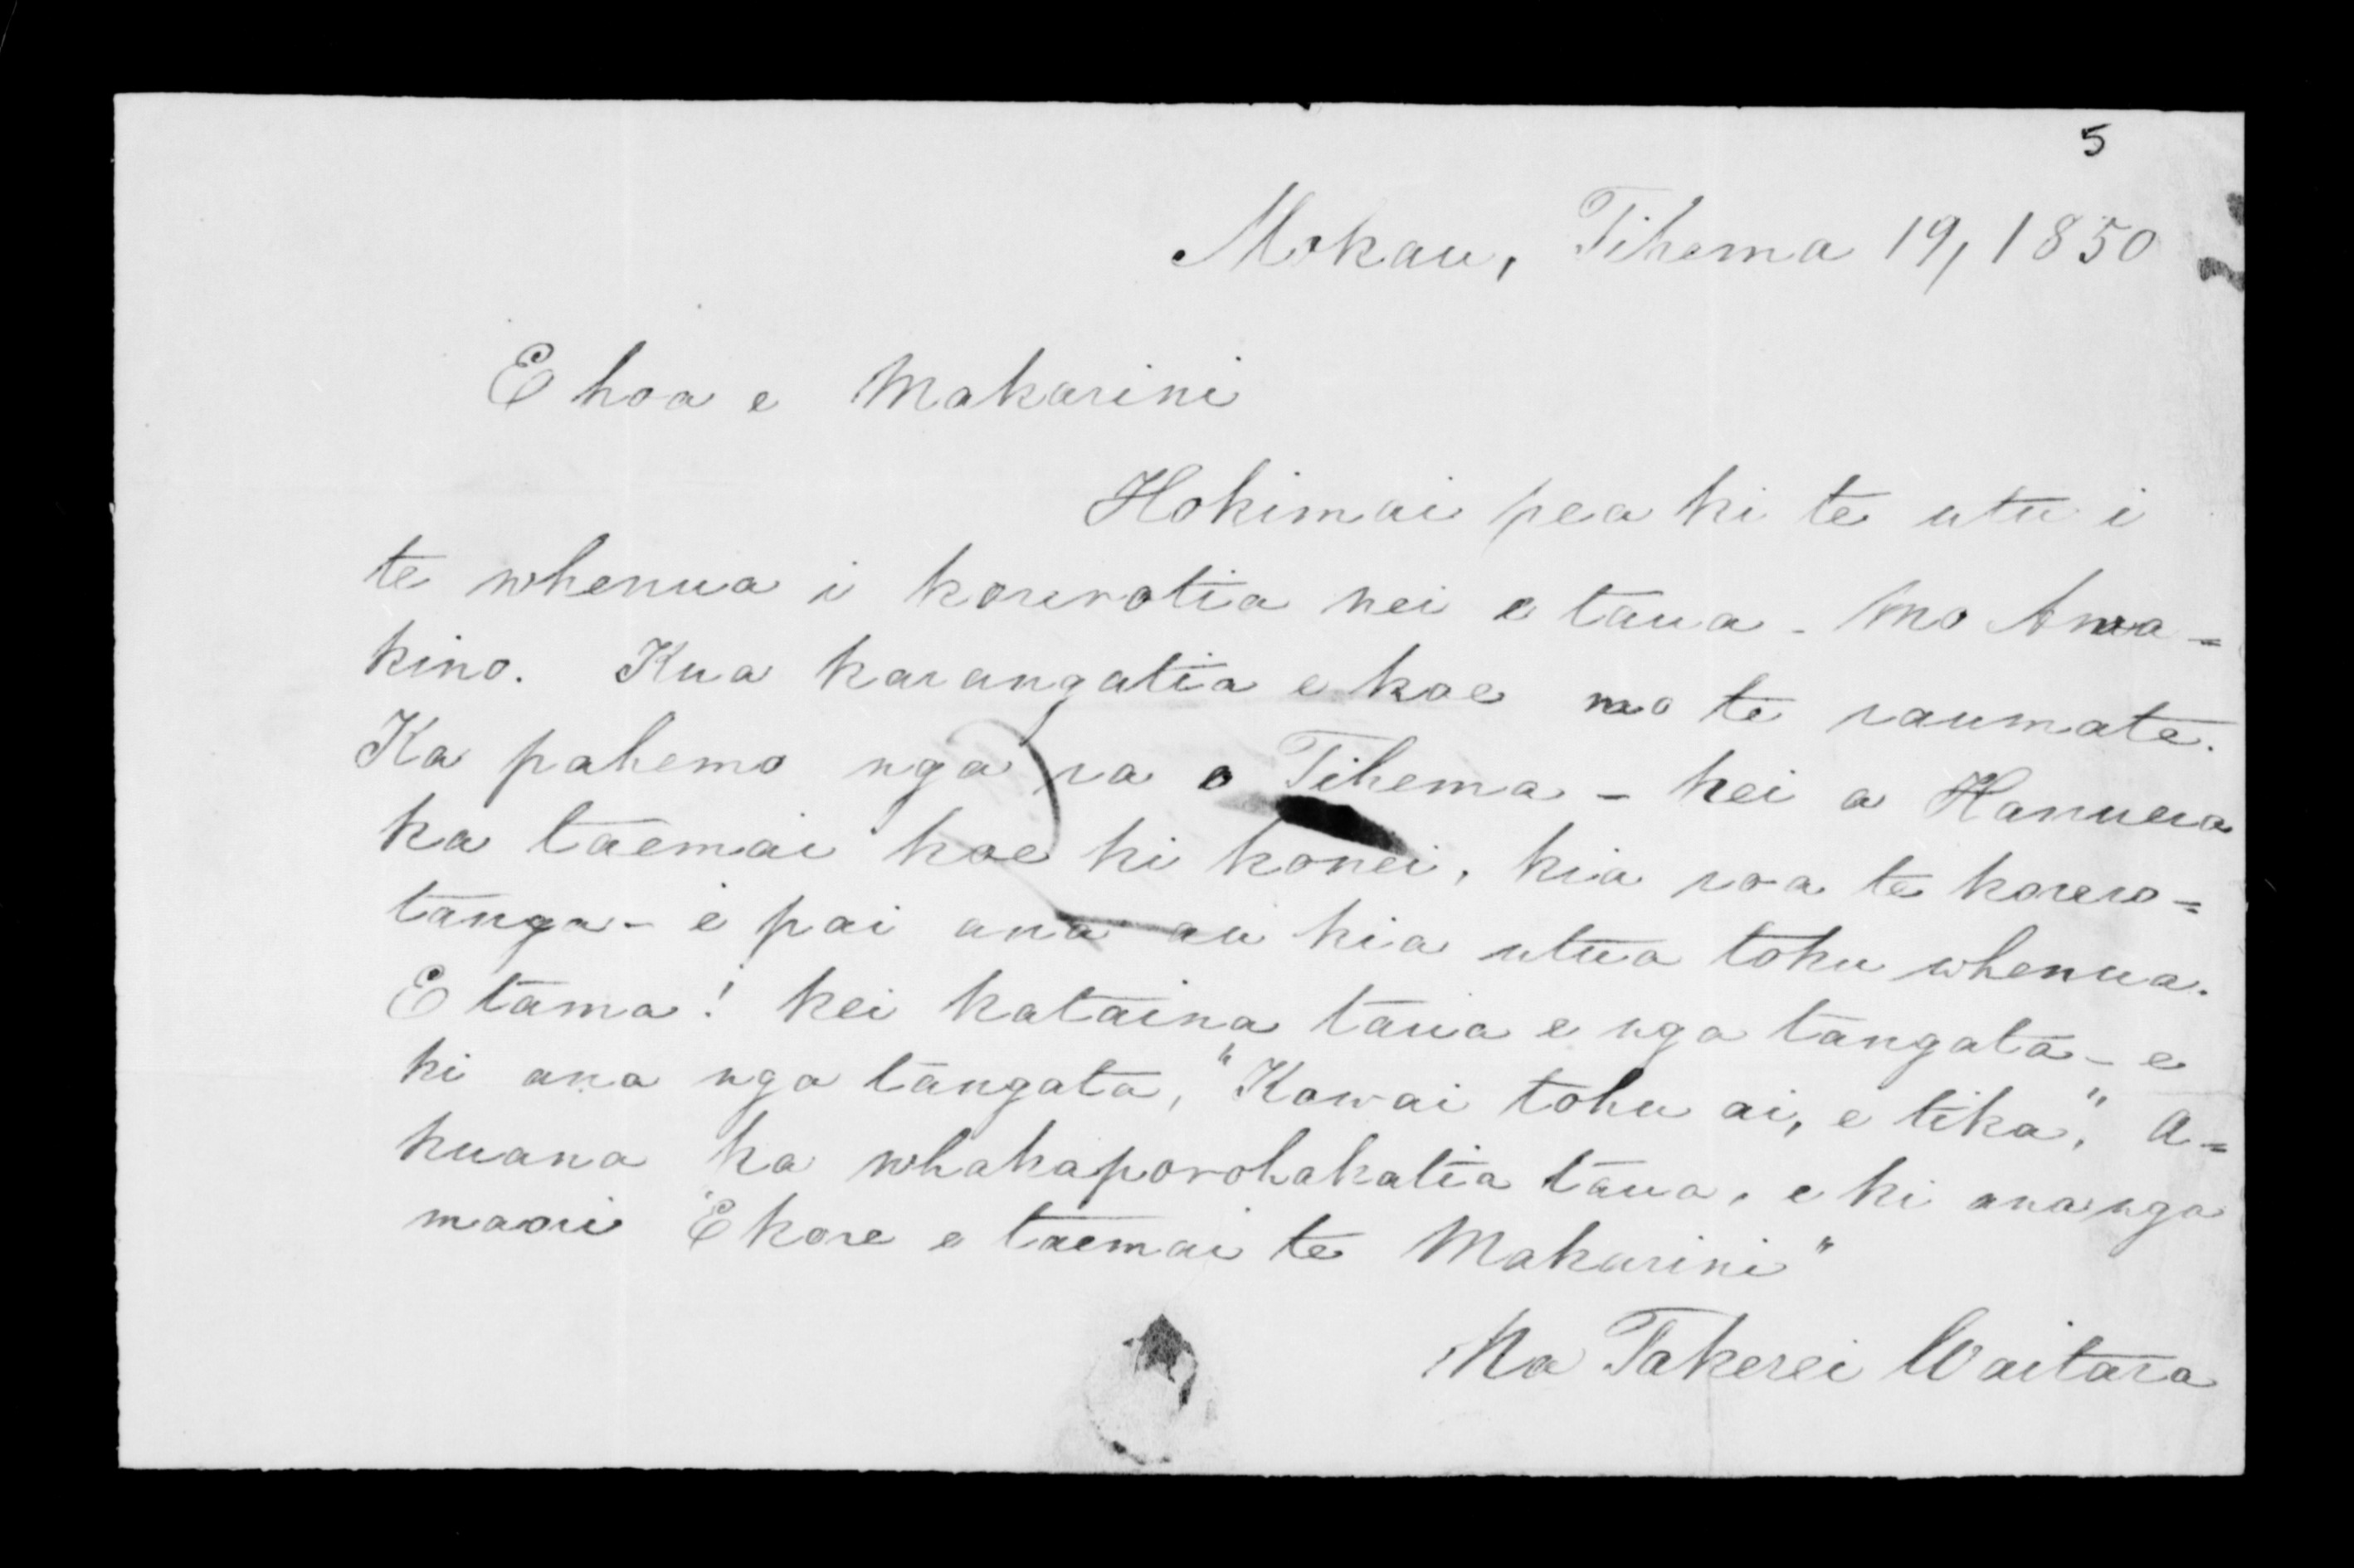 5
Mokau, Tihema 19, 1850
E hoa e Makarini
Hokimai pea ki te utu i
te whenua i korerotia nei e taua - mo Awa=
kino. Kua karangatia e koe mo te raumate.
Ka pahemo nga ra o Tihema - hei a Hanuera
ka taemai koe ki konei, kia roa te korero=
tanga - e pai ana au kia utua toku whenua.
E tama! kei kataina taua e nga tangata - e
ki ana nga tangata, "Kowai tohu ai, e tika," A=
kuana ka whakaporohakatia taua, e ki ana nga
maori "E kore e taemai te Makarini"
Na Takerei Waitara